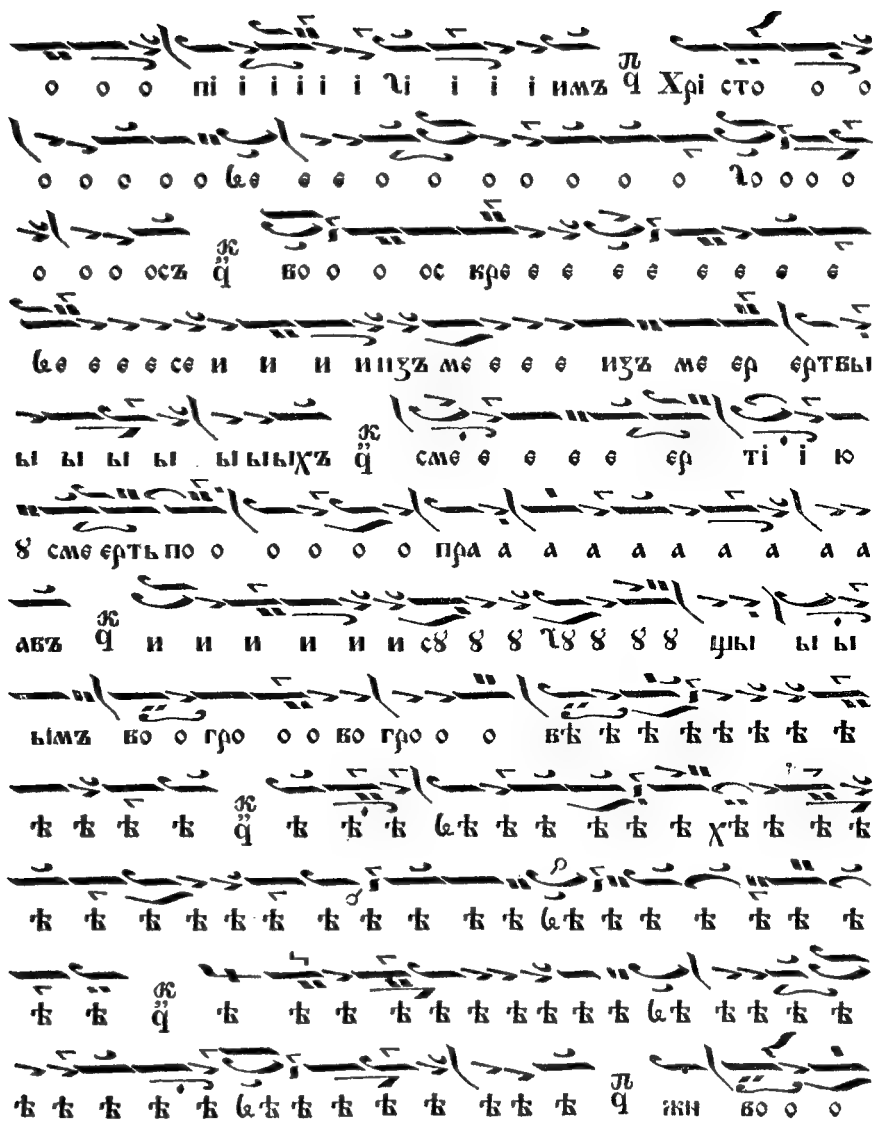 о о о пі і і і і і ꙇі і і і имъ п҃ ч Хрі сто о о
о о о о о ве е е о о о о о о о ꙇо о о о
о о о осъ к ч во о о ос кре е е е е е е е е
ве е е е се и и и иизъ ме е е е изъ ме ер ертвы
ы ы ы ы ы ы ыхъ к ч сме е е е е ер ті і ю
ꙋ сме ерть по о о о о о пра а а а а а а а а
авъ к ч и и и и и и сꙋ ꙋ ꙋ ꙇꙋ ꙋ ꙋ ꙋ щы ы ы
ымъ во о гро о о во гро о о вѣ ѣ ѣ ѣ ѣ ѣ ѣ ѣ
ѣ ѣ ѣ ѣ к ч ѣ ѣ ѣ вѣ ѣ ѣ ѣ ѣ ѣ хѣ ѣ ѣ ѣ
ѣ ѣ ѣ ѣ ѣ ѣ ѣ ѣ ѣ ѣ ѣ вѣ ѣ ѣ ѣ ѣ ѣ ѣ
ѣ ѣ к ч ѣ ѣ ѣ ѣ ѣ ѣ ѣ ѣ ѣ ѣ вѣ ѣ ѣ ѣ ѣ
ѣ ѣ ѣ ѣ ѣ вѣ ѣ ѣ ѣ ѣ ѣ ѣ ѣ ѣ п ч жи во о о